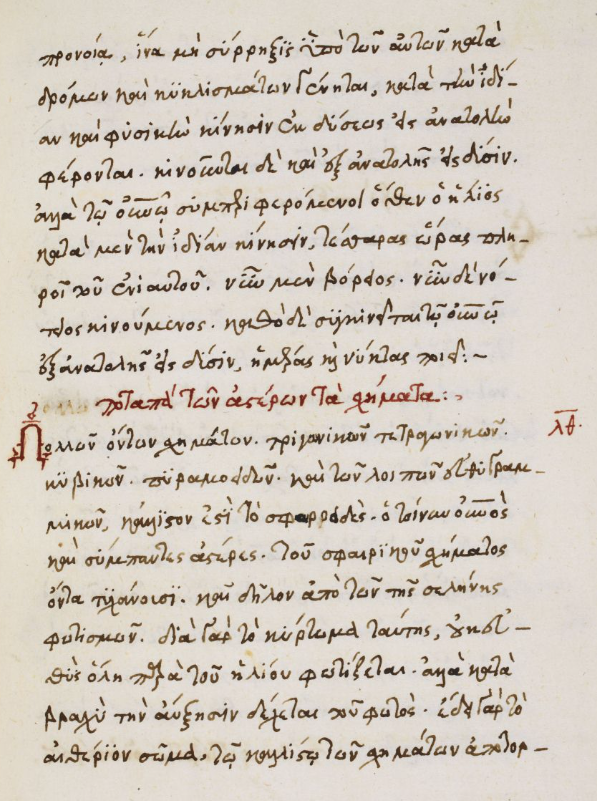 προνοία, ἵνα μὴ σύρρηξϊς ὑπὸ τῶν αὐτῶν κατὰ
δρόμων καὶ κϋκλισμάτων γένηται, κατὰ τὴν ἰδί-
αν καὶ φϋσικὴν κίνησϊν ἐκ δύσεως εἰς ἀνατολὴν
φέρονται. κινοῦνται δὲ καὶ ἐξ ἀνατολῆς εἰς δύσϊν.
ἀλλὰ τῷ οὐνῷ συμπεριφερόμενοι ὅθεν ὁ ἥλϊος
κατὰ μὲν τὴν ἰδίαν κίνησϊν, τέσσαρας ὥρας πλη-
ροῖ τοῦ ἐνϊαυτοῦ. νῦν μὲν βόρεϊος. νῦν δὲ νό-
τϊος κινούμενος. καθὸ δὲ συγκινεῖται τῷ οὐνῷ
ἐξ ἀνατολῆς εἰς δύσϊν, ἡμέρας κὶ νύκτας ποιεῖ:-
ποταπὰ τῶν ἀστέρων τὰ σχήματα:
λθ.
Πολλῶν ὄντων σχημάτων. τριγωνικῶν τετραγωνικῶν.
κϋβικῶν. πϋραμοειδῶν. καὶ τῶν λοιπῶν εὐθϋγραμ-
μικῶν, κάλλϊστον ἐστὶ τὸ σφαιροειδὲς. ὁ τοίνυν οὐνὸς
καὶ σύμπαντες ἀστέρες. τοῦ σφαιρικοῦ σχήματος
ὄντα τϋγχάνουσϊ. καὶ δῆλον ἀπὸ τῶν τῆς σελήνης
φωτισμῶν. διὰ γὰρ τὸ κύρτωμα ταύτης, οὐκ εὐ-
θὺς ὅλη παρὰ τοῦ ἡλίου φωτίζεται. ἀλλὰ κατὰ
βραχὺ τὴν αὔξησϊν δέχεται τοῦ φωτὸς. ἔδει γὰρ τὸ
αἰθέρϊον σῶμα, τῷ καλλίστῳ τῶν σχημάτων ἀποτορ-